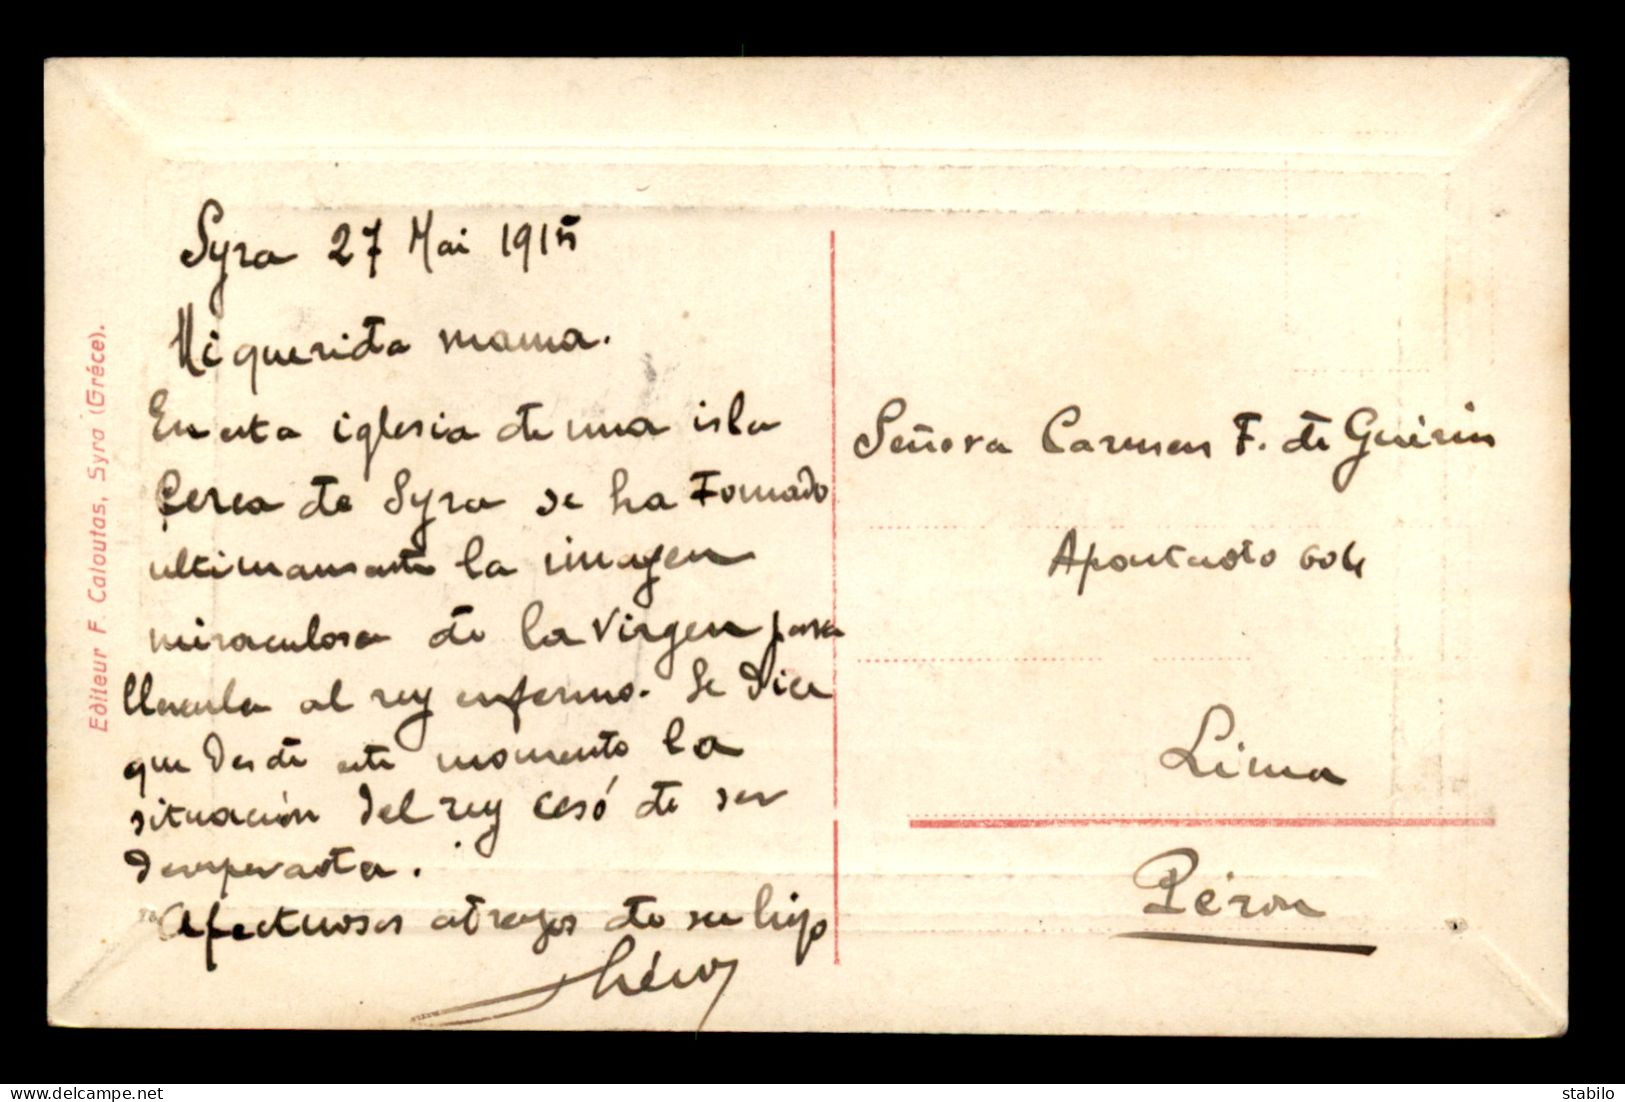 Editeur F. Caloutas, Syra (Gréce).
Syra 27 Mai 1915
Mi querida mama.
En esta iglesia de una isla
cerca de Syra se ha tomado
ultimamente la imagen
miraculosa de la Virgen para
llevarla al rey enfermo. Se dice
que desde este momento la
situación del rey cesó de ser
desesperada.
Afectuosos abrazos de su hijo
Señora Carmen F. de Guérin
Apartado 604
Lima
Pérou
stabilo